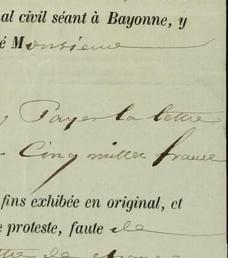 al civil séant à Bayonne, y
é Monsieur
Payer la lettre
Cinq milles francs
fins exhibée en original, et
e proteste, faute de